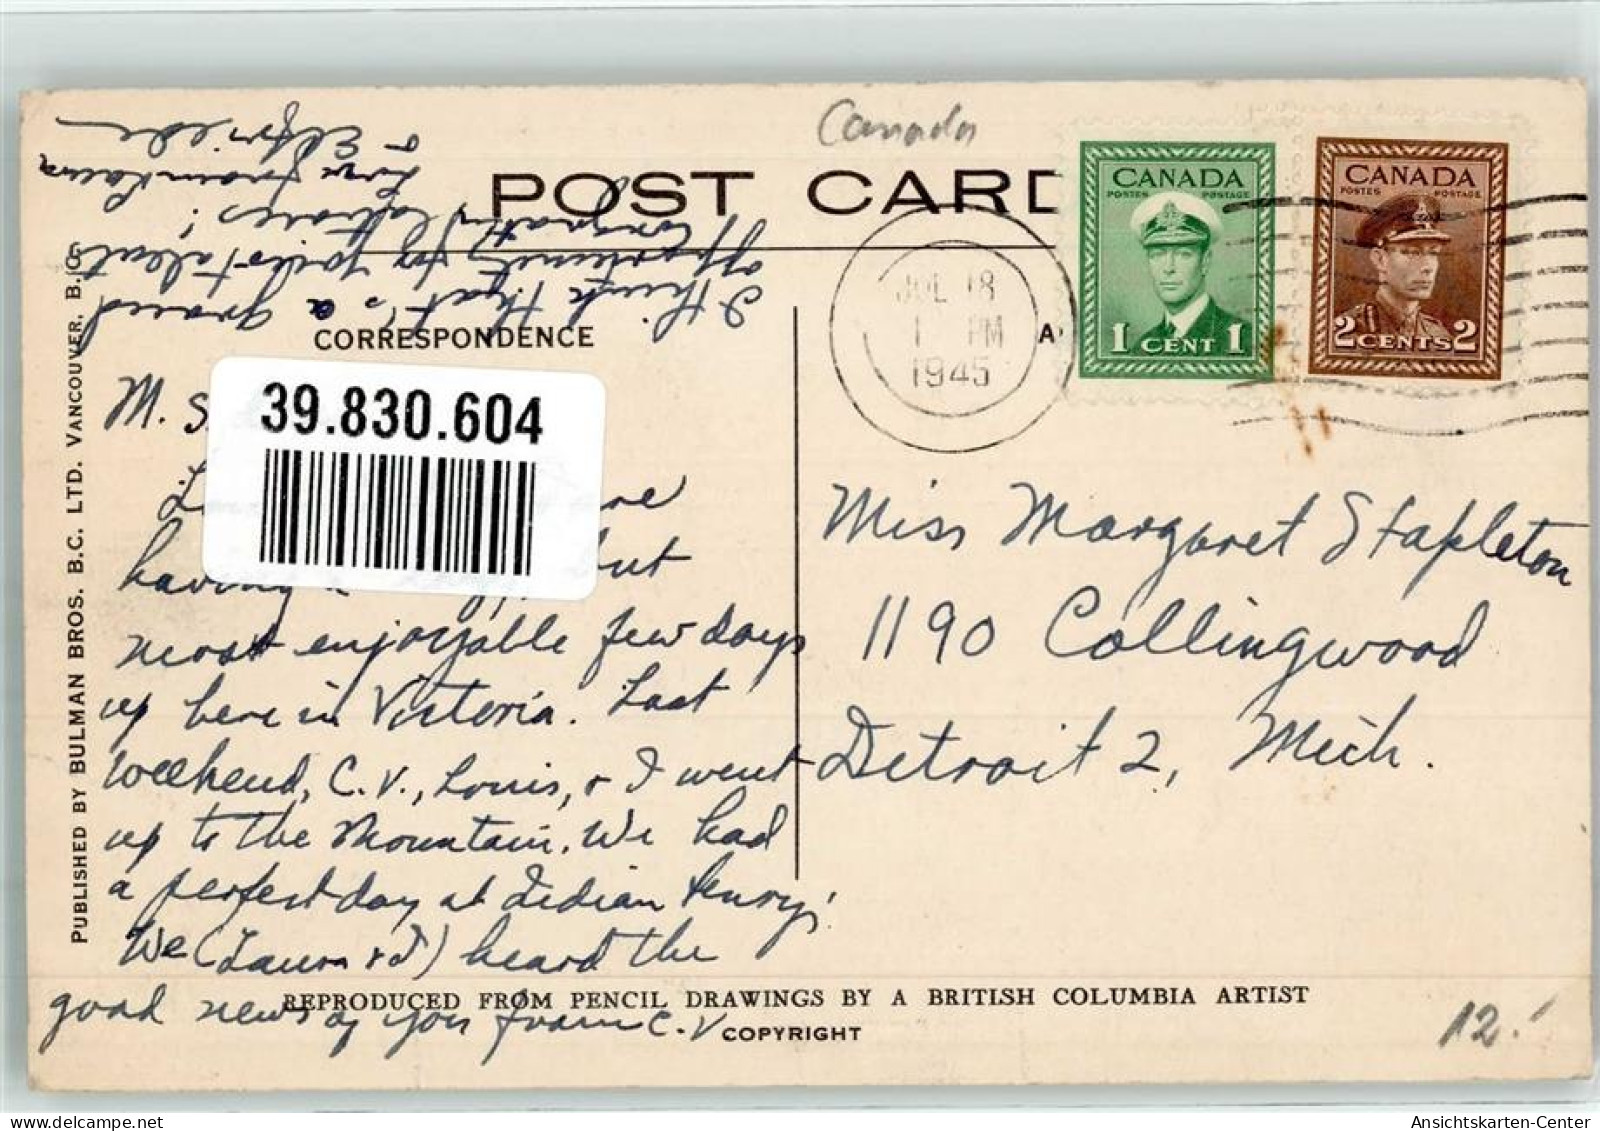 Canada
POST CARD
CANADA
POSTES POSTAGE
1 CENT 1
CANADA
POSTES POSTAGE
2 CENTS 2
JUL 18
1 PM
1945
A
CORRESPONDENCE
39.830.604
PUBLISHED BY BULMAN BROS. B.C. LTD. VANCOUVER, B.C.
M. S
having a but
most enjoyable few days
up here in Victoria. Last
weekend, C.V., Louis, & I went
up to the Mountain. We had
a perfect day at Indian Henry's
We (Laura & I) heard the
good news of you from C.V.
I think that's a grand
opportunity for you
Congratulations!
Love from Laura
& Elfriede
Miss Margaret Stapleton
1190 Collingwood
Detroit 2, Mich.
REPRODUCED FROM PENCIL DRAWINGS BY A BRITISH COLUMBIA ARTIST
COPYRIGHT
12.
www.delcampe.net
Ansichtskarten-Center